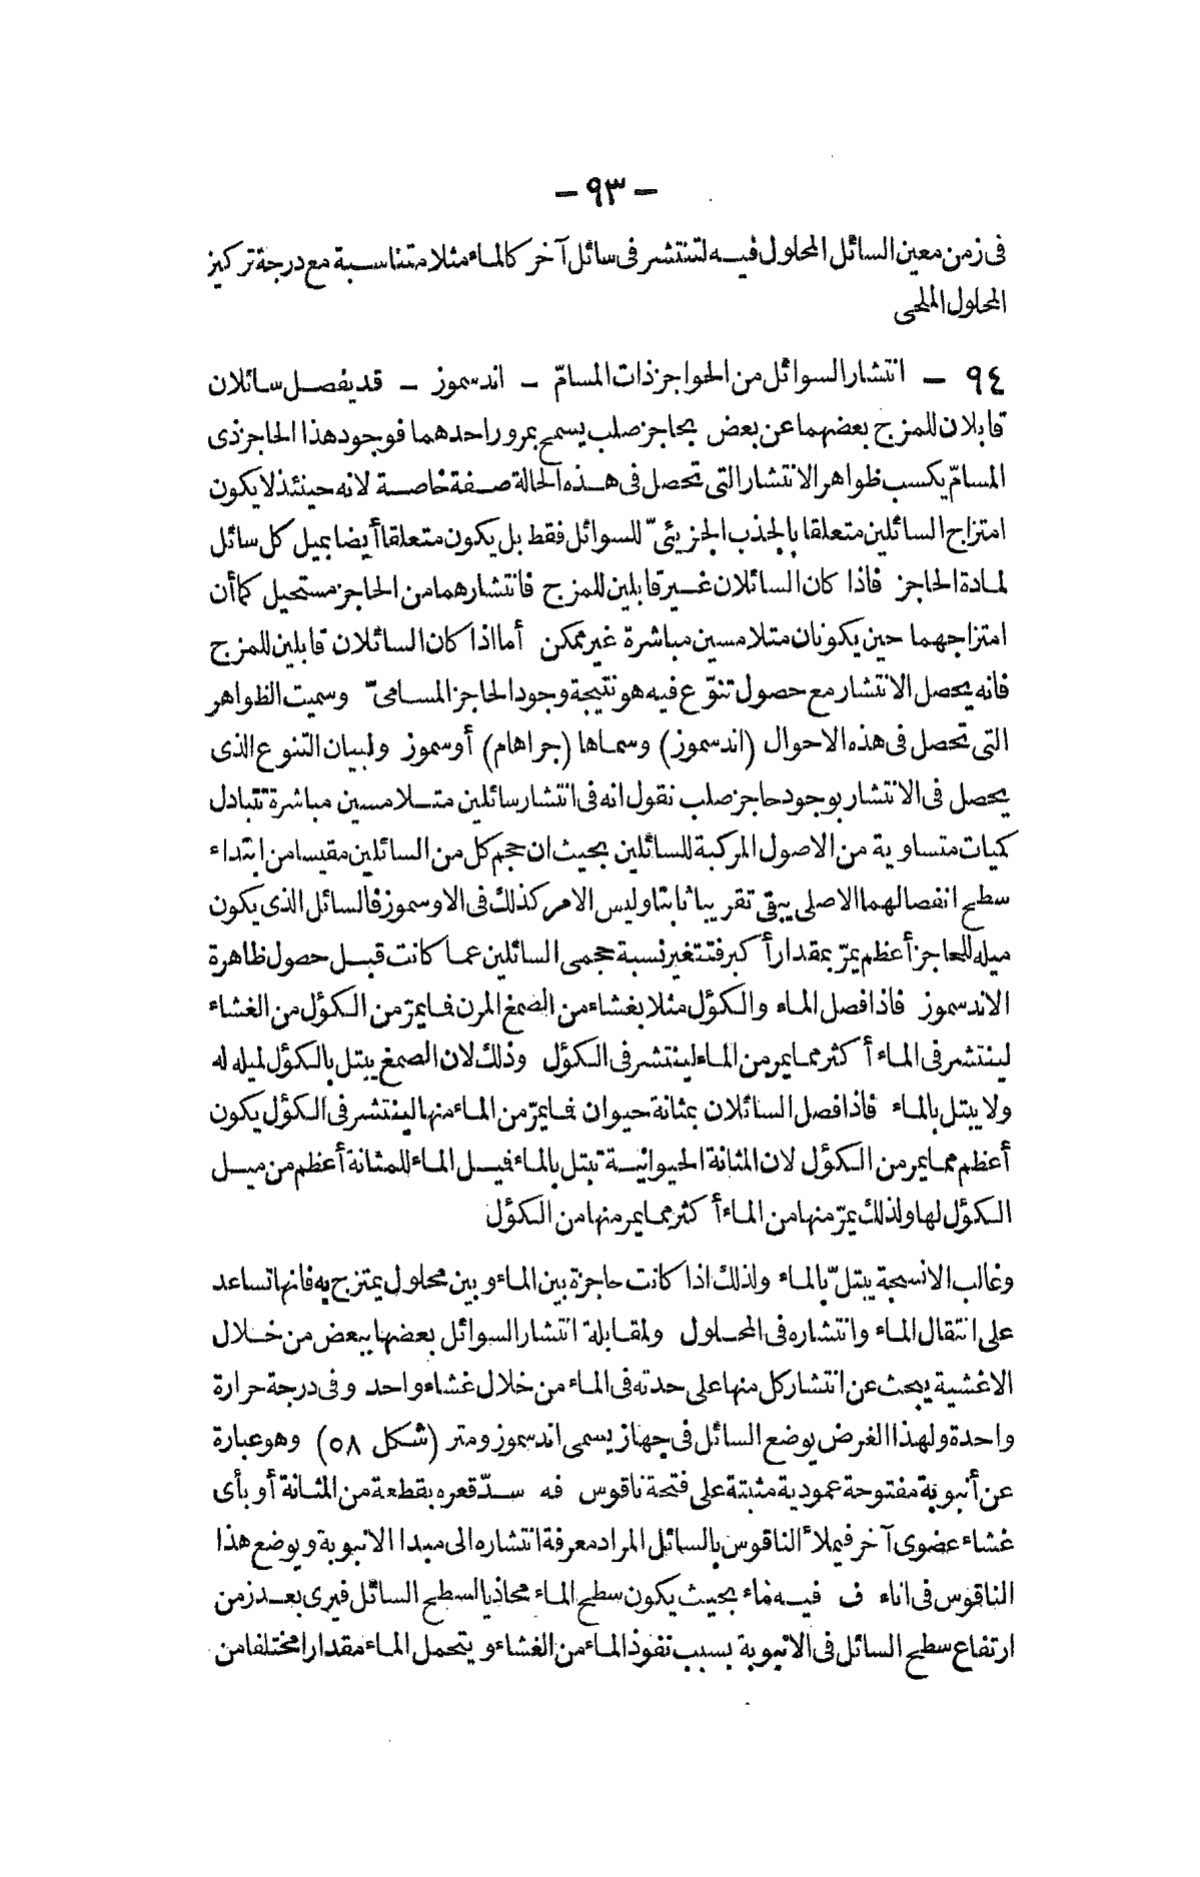 — ٩٣ —
فى زمن معين السائل المحلول فيه لتنتشر فى سائل آخر كالماء مثلا متناسبة مع درجة تركيز
المحلول الملحى
٩٤ — انتشار السوائل من الحواجز ذات المسامّ — اندسموز — قد يفصل سائلان
قابلان للمزج بعضهما عن بعض بحاجز صلب يسمح بمرور احدهما فوجود هذا الحاجز ذى
المسامّ يكسب ظواهر الانتشار التى تحصل فى هذه الحالة صفة خاصة لانه حينئذ لا يكون
امتزاج السائلين متعلقا بالجذب الجزيئىّ للسوائل فقط بل يكون متعلقا أيضا بميل كل سائل
لمادة الحاجز فاذا كان السائلان غير قابلين للمزج فانتشارهما من الحاجز مستحيل كما أن
امتزاجهما حين يكونان متلامسين مباشرة غير ممكن أما اذا كان السائلان قابلين للمزج
فانه يحصل الانتشار مع حصول تنوّع فيه هو نتيجة وجود الحاجز المسامىّ وسميت الظواهر
التى تحصل فى هذه الاحوال (اندسموز) وسماها (جراهام) أوسموز ولبيان التنوع الذى
يحصل فى الانتشار بوجود حاجز صلب نقول انه فى انتشار سائلين متلامسين مباشرة تتبادل
كميات متساوية من الاصول المركبة للسائلين بحيث ان حجم كل من السائلين مقيسا من ابتداء
سطح انفصالهما الاصلى يبقى تقريبا ثابتا وليس الامر كذلك فى الاوسموز فالسائل الذى يكون
ميله للحاجز أعظم يمرّ بمقدار أكبر فتتغير نسبة حجمى السائلين عما كانت قبل حصول ظاهرة
الاندسموز فاذا فصل الماء والكؤل مثلا بغشاء من الصمغ المرن فما يمرّ من الكؤل من الغشاء
لينتشر فى الماء أكثر مما يمر من الماء لينتشر فى الكؤل وذلك لان الصمغ يبتل بالكؤل لميله له
ولا يبتل بالماء فاذا فصل السائلان بمثانة حيوان فما يمرّ من الماء منها لينتشر فى الكؤل يكون
أعظم مما يمر من الكؤل لان المثانة الحيوانية تبتل بالماء فميل الماء للمثانة أعظم من ميل
الكؤل لها ولذلك يمرّ منها من الماء أكثر مما يمر منها من الكؤل
وغالب الانسجة يبتلّ بالماء ولذلك اذا كانت حاجزة بين الماء وبين محلول يمتزج به فانها تساعد
على انتقال الماء وانتشاره فى المحلول ولمقابلة انتشار السوائل بعضها ببعض من خلال
الاغشية يبحث عن انتشار كل منها على حدته فى الماء من خلال غشاء واحد وفى درجة حرارة
واحدة ولهذا الغرض يوضع السائل فى جهاز يسمى اندسموزومتر (شكل ٥٨) وهو عبارة
عن أنبوبة مفتوحة عمودية مثبتة على فتحة ناقوس فه سدّ قعره بقطعة من المثانة أو بأى
غشاء عضوى آخر فيملأ الناقوس بالسائل المراد معرفة انتشاره الى مبدا الانبوبة ويوضع هذا
الناقوس فى اناء ف فيه ماء بحيث يكون سطح الماء محاذيا لسطح السائل فيرى بعد زمن
ارتفاع سطح السائل فى الانبوبة بسبب نفوذ الماء من الغشاء ويتحمل الماء مقدارا مختلفا من